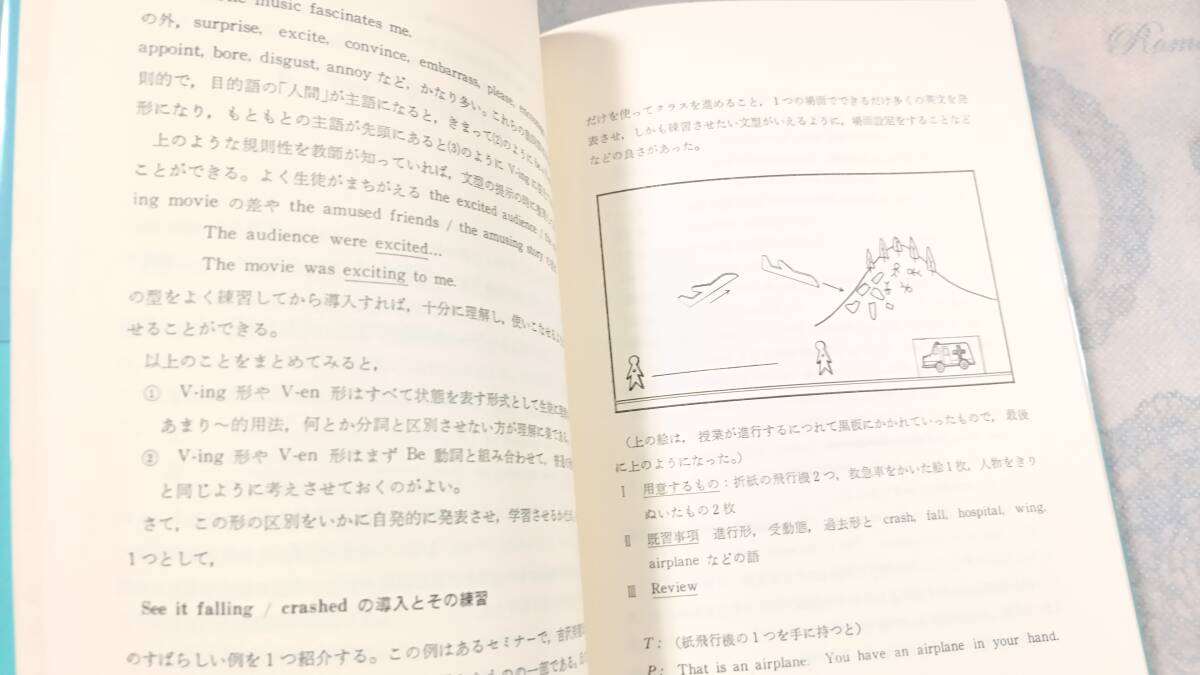 music fascinates me.
の外, surprise, excite, convince, embarrass, please,
appoint, bore, disgust, annoy など, かなり多い。これらの
則的で, 目的語の「人間」が主語になると, きまって(2)のように
形になり, もともとの主語が先頭にあると(3)のように V-ing に
上のような規則性を教師が知っていれば, 文型の提示の時に
ことができる。よく生徒がまちがえる the excited audience /
ing movie の差や the amused friends / the amusing story
The audience were excited…
The movie was exciting to me.
の型をよく練習してから導入すれば, 十分に理解し, 使いこなせるよ
せることができる。
以上のことをまとめてみると,
① V-ing 形や V-en 形はすべて状態を表す形式として生徒に
あまり〜的用法, 何とか分詞と区別させない方が理解に楽である。
② V-ing 形や V-en 形はまず Be 動詞と組み合わせて,
と同じように考えさせておくのがよい。
さて, この形の区別をいかに自発的に発表させ, 学習させるか
1つとして,
See it falling / crashed の導入とその練習
のすばらしい例を1つ紹介する。この例はあるセミナーで, 吉沢
ものの一部である。
だけを使ってクラスを進めること, 1つの場面でできるだけ多くの英文を発
表させ, しかも練習させたい文型がいえるように, 場面設定をすることなど
などの良さがあった。
(上の絵は, 授業が進行するにつれて黒板にかかれていったもので, 最後
に上のようになった。)
Ⅰ 用意するもの:折紙の飛行機2つ, 救急車をかいた絵1枚, 人物をきり
ぬいたもの2枚
Ⅱ 既習事項 進行形, 受動態, 過去形と crash, fall, hospital, wing,
airplane などの語
Ⅲ Review
T: (紙飛行機の1つを手に持つと)
P: That is an airplane. You have an airplane in your hand.